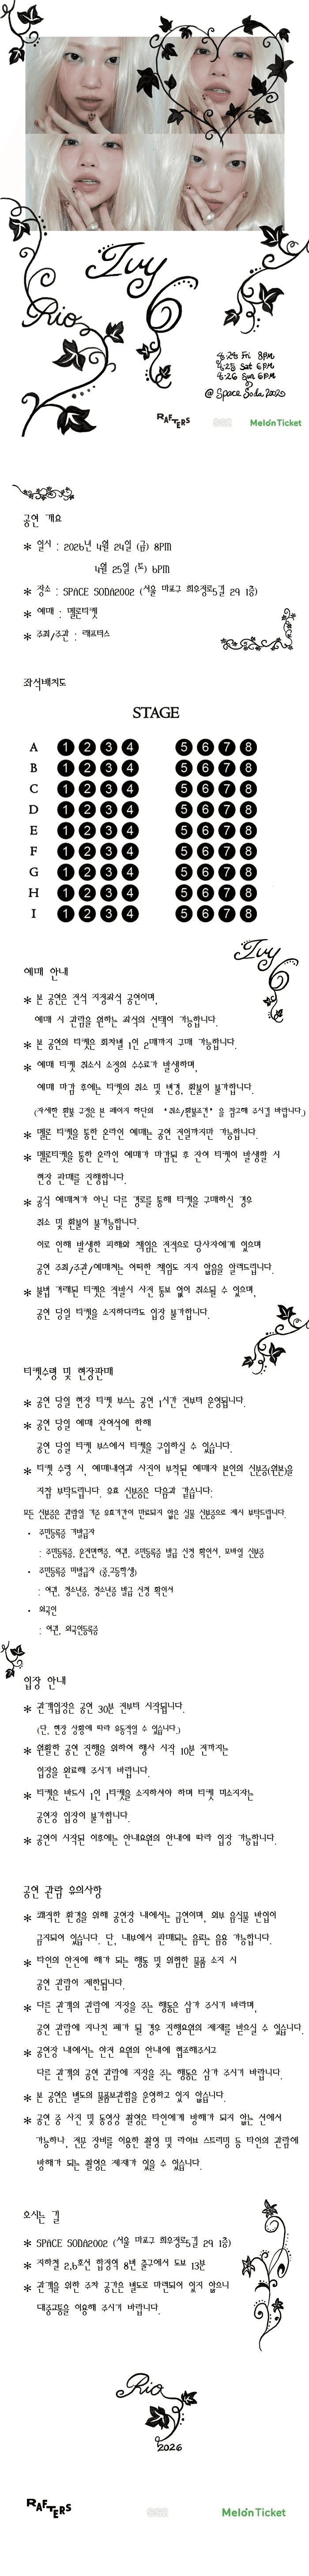 Ivy
Rio
4.24 Fri 8PM
4.25 Sat 6PM
4.26 Sun 6PM
@ Space Soda 2002
RAFTERS
Melon Ticket
공연 개요
* 일시 : 2026년 4월 24일 (금) 8PM
4월 25일 (토) 6PM
* 장소 : SPACE SODA2002 (서울 마포구 희우정로5길 29 1층)
* 예매 : 멜론티켓
* 주최/주관 : 래프터스
좌석배치도
STAGE
A 1 2 3 4 5 6 7 8
B 1 2 3 4 5 6 7 8
C 1 2 3 4 5 6 7 8
D 1 2 3 4 5 6 7 8
E 1 2 3 4 5 6 7 8
F 1 2 3 4 5 6 7 8
G 1 2 3 4 5 6 7 8
H 1 2 3 4 5 6 7 8
I 1 2 3 4 5 6 7 8
Ivy
예매 안내
* 본 공연은 전석 지정좌석 공연이며,
예매 시 관람을 원하는 좌석의 선택이 가능합니다.
* 본 공연의 티켓은 회차별 1인 2매까지 구매 가능합니다.
* 예매 티켓 취소시 소정의 수수료가 발생하며,
예매 마감 후에는 티켓의 취소 및 변경, 환불이 불가합니다.
(자세한 환불 규정은 본 페이지 하단의 '취소/환불조건' 을 참고해 주시길 바랍니다.)
* 멜론 티켓을 통한 온라인 예매는 공연 전일까지만 가능합니다.
* 멜론티켓을 통한 온라인 예매가 마감된 후 잔여 티켓이 발생할 시
현장 판매를 진행합니다.
* 공식 예매처가 아닌 다른 경로를 통해 티켓을 구매하신 경우
취소 및 환불이 불가능합니다.
이로 인해 발생한 피해의 책임은 전적으로 당사자에게 있으며
공연 주최/주관/예매처는 어떠한 책임도 지지 않음을 알려드립니다.
* 불법 거래된 티켓은 적발시 사전 통보 없이 취소될 수 있으며,
공연 당일 티켓을 소지하더라도 입장 불가합니다.
티켓수령 및 현장판매
* 공연 당일 현장 티켓 부스는 공연 1시간 전부터 운영됩니다.
* 공연 당일 예매 잔여석에 한해
공연 당일 티켓 부스에서 티켓을 구입하실 수 있습니다.
* 티켓 수령 시, 예매내역과 사진이 부착된 예매자 본인의 신분증(원본)을
지참 부탁드립니다. 유효 신분증은 다음과 같습니다:
모든 신분증은 관람일 기준 유효기간이 만료되지 않은 실물 신분증으로 제시 부탁드립니다.
• 주민등록증 기발급자
: 주민등록증, 운전면허증, 여권, 주민등록증 발급 신청 확인서, 모바일 신분증
• 주민등록증 미발급자 (중,고등학생)
: 여권, 청소년증, 청소년증 발급 신청 확인서
• 외국인
: 여권, 외국인등록증
입장 안내
* 관객입장은 공연 30분 전부터 시작됩니다.
(단, 현장 상황에 따라 유동적일 수 있습니다.)
* 원활한 공연 진행을 위하여 행사 시작 10분 전까지는
입장을 완료해 주시기 바랍니다.
* 티켓은 반드시 1인 1티켓을 소지하셔야 하며 티켓 미소지자는
공연장 입장이 불가합니다.
* 공연이 시작된 이후에는 안내요원의 안내에 따라 입장 가능합니다.
공연 관람 유의사항
* 쾌적한 환경을 위해 공연장 내에서는 금연이며, 외부 음식물 반입이
금지되어 있습니다. 단, 내부에서 판매되는 음료는 음용 가능합니다.
* 타인의 안전에 해가 되는 행동 및 위험한 물품 소지 시
공연 관람이 제한됩니다.
* 다른 관객의 관람에 지장을 주는 행동은 삼가 주시기 바라며,
공연 관람에 지나친 폐가 될 경우 진행요원의 제재를 받으실 수 있습니다.
* 공연장 내에서는 안전 요원의 안내에 협조해주시고
다른 관객의 공연 관람에 지장을 주는 행동은 삼가 주시기 바랍니다.
* 본 공연은 별도의 물품보관함을 운영하고 있지 않습니다.
* 공연 중 사진 및 동영상 촬영은 타인에게 방해가 되지 않는 선에서
가능하나, 전문 장비를 이용한 촬영 및 라이브 스트리밍 등 타인의 관람에
방해가 되는 촬영은 제재가 있을 수 있습니다.
오시는 길
* SPACE SODA2002 (서울 마포구 희우정로5길 29 1층)
* 지하철 2,6호선 합정역 8번 출구에서 도보 13분
* 관객을 위한 주차 공간은 별도로 마련되어 있지 않으니
대중교통을 이용해 주시기 바랍니다.
Rio
2026
RAFTERS
Melon Ticket